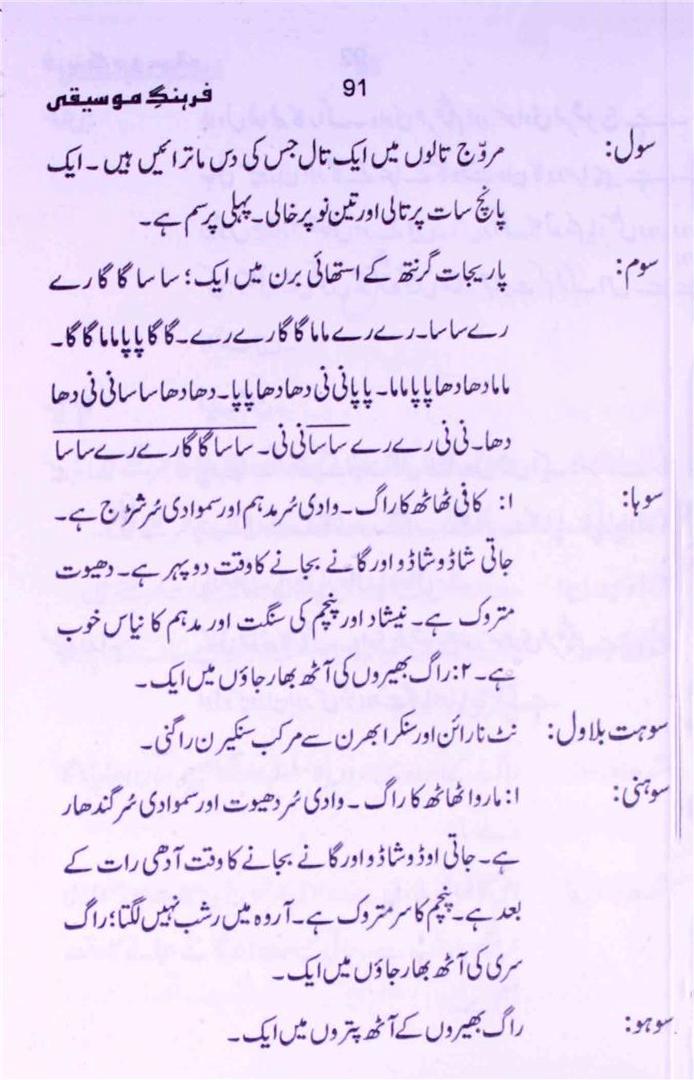 91
فرہنگِ موسیقی
سول: مروّج تالوں میں ایک تال جس کی دس ماترائیں ہیں۔ ایک
پانچ سات پر تالی اور تین نو پر خالی۔ پہلی پر سم ہے۔
سوم: پاریجات گرنتھ کے استھائی برن میں ایک؛ سا سا گا گا رے
رے سا سا۔ رے رے ماما گا گا رے رے۔ گا گا پا پا ماما گا گا۔
مامادھادھا پا پا ماما۔ پا پا نی نی دھادھا پا پا۔ دھادھا سا سا نی نی دھا
دھا۔ نی نی رے رے سا سا نی نی۔ سا سا گا گا رے رے سا سا
سوہا: ۱: کافی ٹھاٹھ کا راگ۔ وادی سُر مدہم اور سموادی سُر شڑوج ہے۔
جاتی شاڈو شاڈو اور گانے بجانے کا وقت دوپہر ہے۔ دھیوت
متروک ہے۔ نیشاد اور پنچم کی سنگت اور مدہم کا نیاس خوب
ہے۔ ۲: راگ بھیروں کی آٹھ بھارجاؤں میں ایک۔
سوہت بلاول: نٹ نارائن اور سنکرا بھرن سے مرکب سنکیرن راگنی۔
سوہنی: ۱: ماروا ٹھاٹھ کا راگ۔ وادی سُر دھیوت اور سموادی سُر گندھار
ہے۔ جاتی اوڈو شاڈو اور گانے بجانے کا وقت آدھی رات کے
بعد ہے۔ پنچم کا سر متروک ہے۔ آروہ میں رشب نہیں لگتا؛ راگ
سری کی آٹھ بھارجاؤں میں ایک۔
سوہو: راگ بھیروں کے آٹھ پتروں میں ایک۔